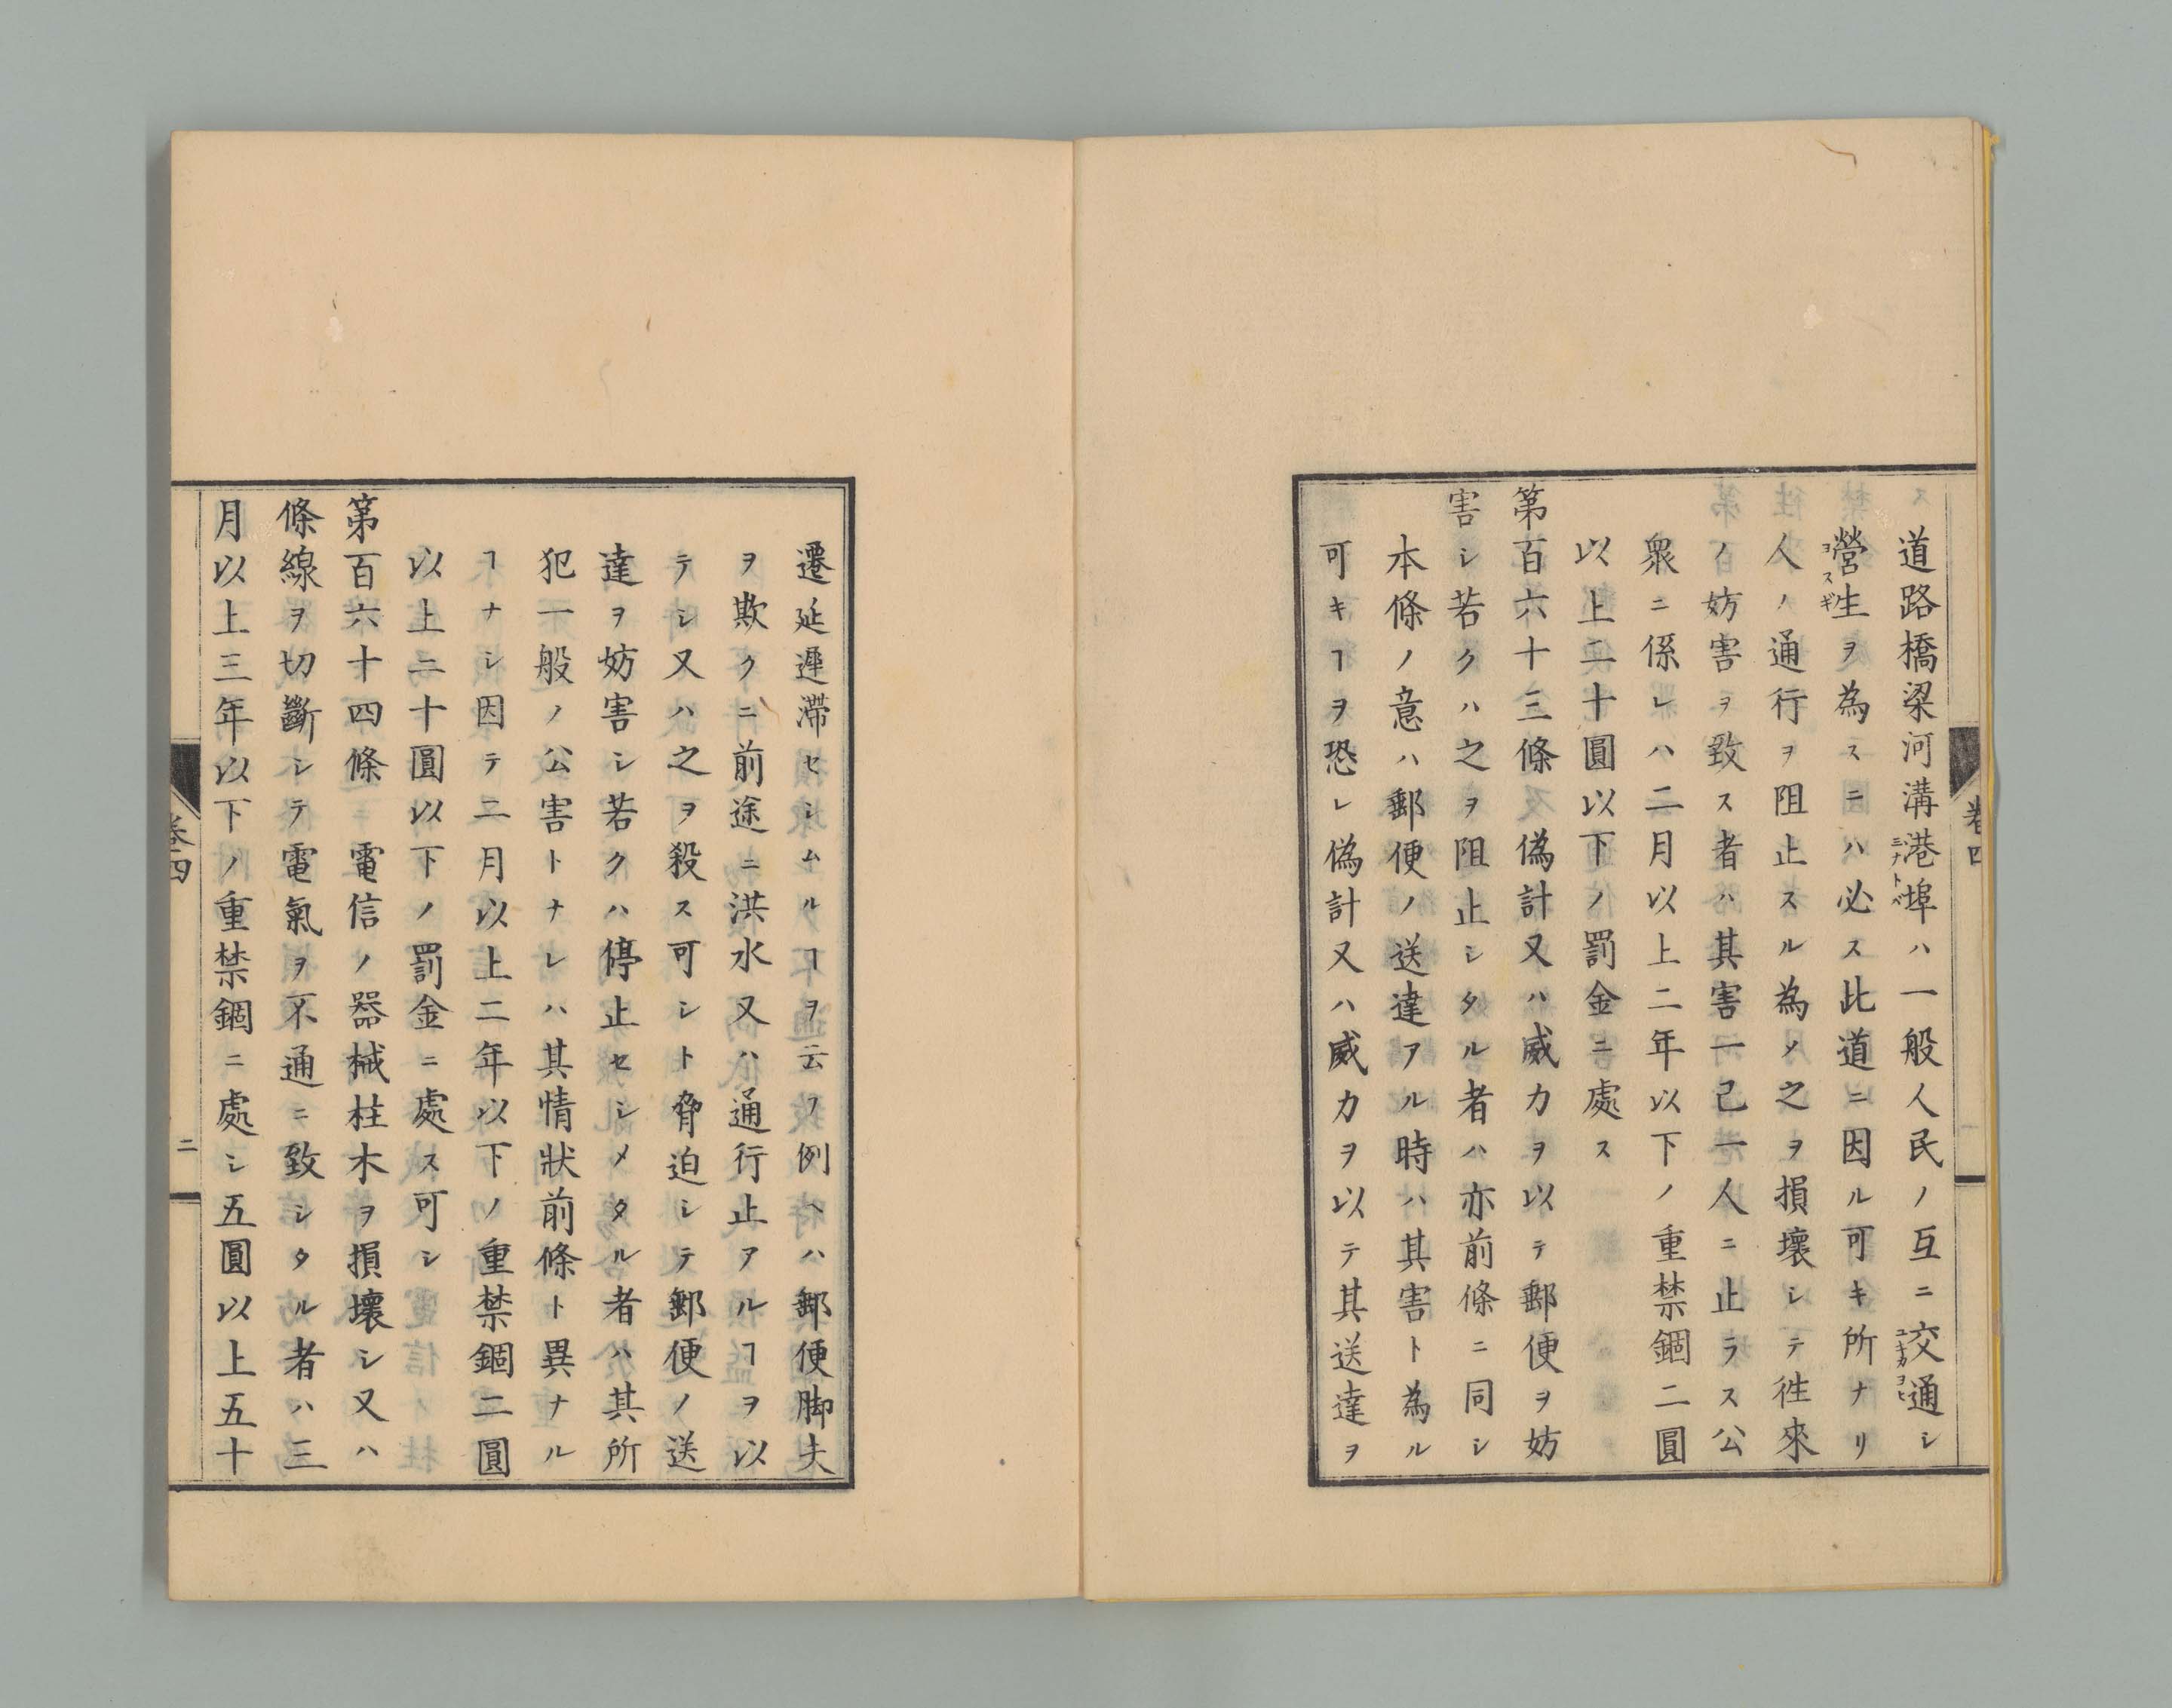 道路橋梁河溝港埠ハ一般人民ノ互ニ交通シ
營生ヲ為スニハ必ス此道ニ因ル可キ所ナリ
人ノ通行ヲ阻止スル為メ之ヲ損壞シテ徃來
ノ妨害ヲ致ス者ハ其害一己一人ニ止ラス公
衆ニ係レハ二月以上二年以下ノ重禁錮二圓
以上二十圓以下ノ罰金ニ處ス
第百六十三條偽計又ハ威力ヲ以テ郵便ヲ妨
害シ若クハ之ヲ阻止シタル者ハ亦前條ニ同シ
本條ノ意ハ郵便ノ送達アル時ハ其害ト為ル
可キヿヲ恐レ偽計又ハ威力ヲ以テ其送達ヲ
遷延遲滯セシムルヿヲ云フ例ヘハ郵便脚夫
ヲ欺クニ前途ニ洪水又ハ通行止アルヿヲ以
テシ又ハ之ヲ殺ス可シト脅迫シテ郵便ノ送
達ヲ妨害シ若クハ停止セシメタル者ハ其所
犯一般ノ公害トナレハ其情狀前條ト異ナル
ヿナシ因テ二月以上二年以下ノ重禁錮二圓
以上二十圓以下ノ罰金ニ處ス可シ
第百六十四條 電信ノ器械柱木ヲ損壞シ又ハ
條線ヲ切斷シテ電氣ヲ不通ニ致シタル者ハ三
月以上三年以下ノ重禁錮ニ處シ五圓以上五十
卷四
二